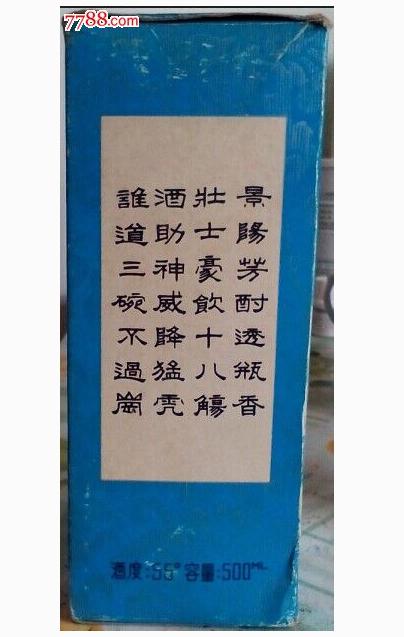 7788.com
景陽芳酎透瓶香
壯士豪飲十八觴
酒助神威降猛虎
誰道三碗不過崗
酒度:55°容量:500ML